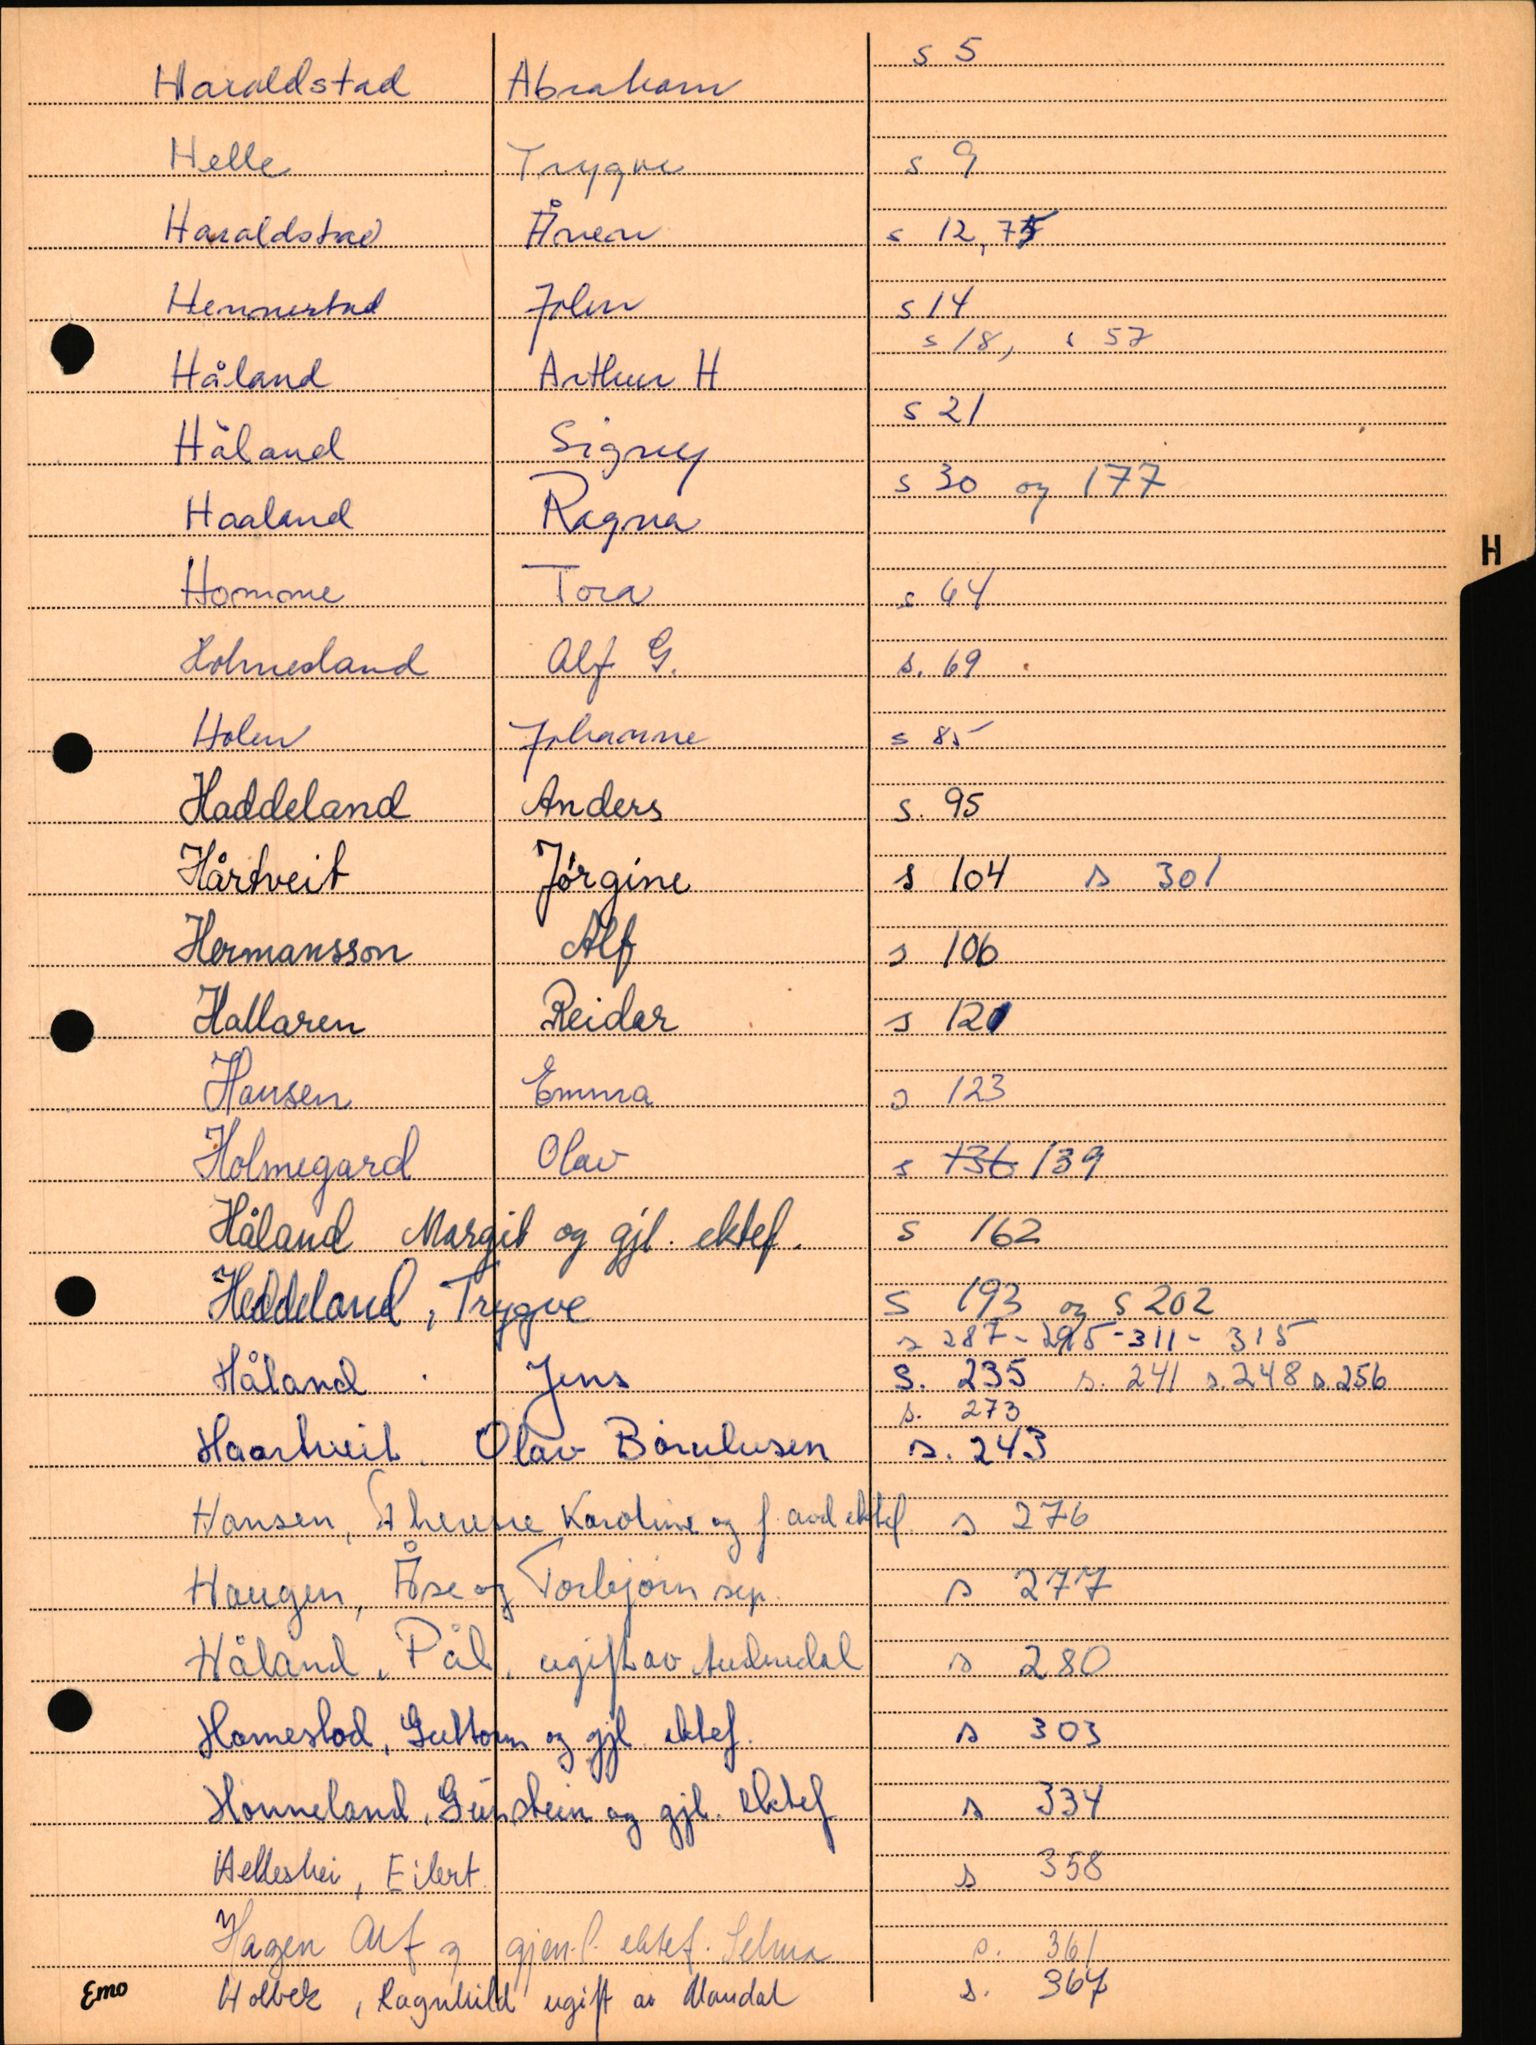 Haraldstad Abraham s 5
Helle Trygve s 9
Haraldstad Ånen s 12, 75
Hennestad John s 14
s 18, s 57
Håland Arthur H
Håland Signy s 21
Haaland Ragna s 30 og 177
H
Homme Tora s 64
Holmesland Alf G. s. 69
Holen Johanne s 85
Haddeland Anders s. 95
Hårtveit Jørgine s 104 s 301
Hermansson Alf s 106
Hallaren Reidar s 121
Hansen Emma s 123
Holmegard Olav s 136 139
Håland Margit og gjl. ektef. s 162
Heddeland, Trygve s 193 og s 202
s 287 - 295 - 311 - 315
Håland Jens S. 235 s. 241 s. 248 s. 256
s. 273
Haartveit. Olav s. 243
Hansen, Therese Karoline og f. avd ektef. s 276
Haugen, Åse og Torbjørn sep. s 277
Håland, Pål, ugift av Audnedal s 280
Homestad, Guttorm og gjl. ektef. s 303
Honneland, Gunstein og gjl. ektef s 334
Helleshei, Eilert s 358
Hagen Alf og gjen.l. ektef. Selma s. 361
Emo Holbek, Ragnhild ugift av Mandal s. 367